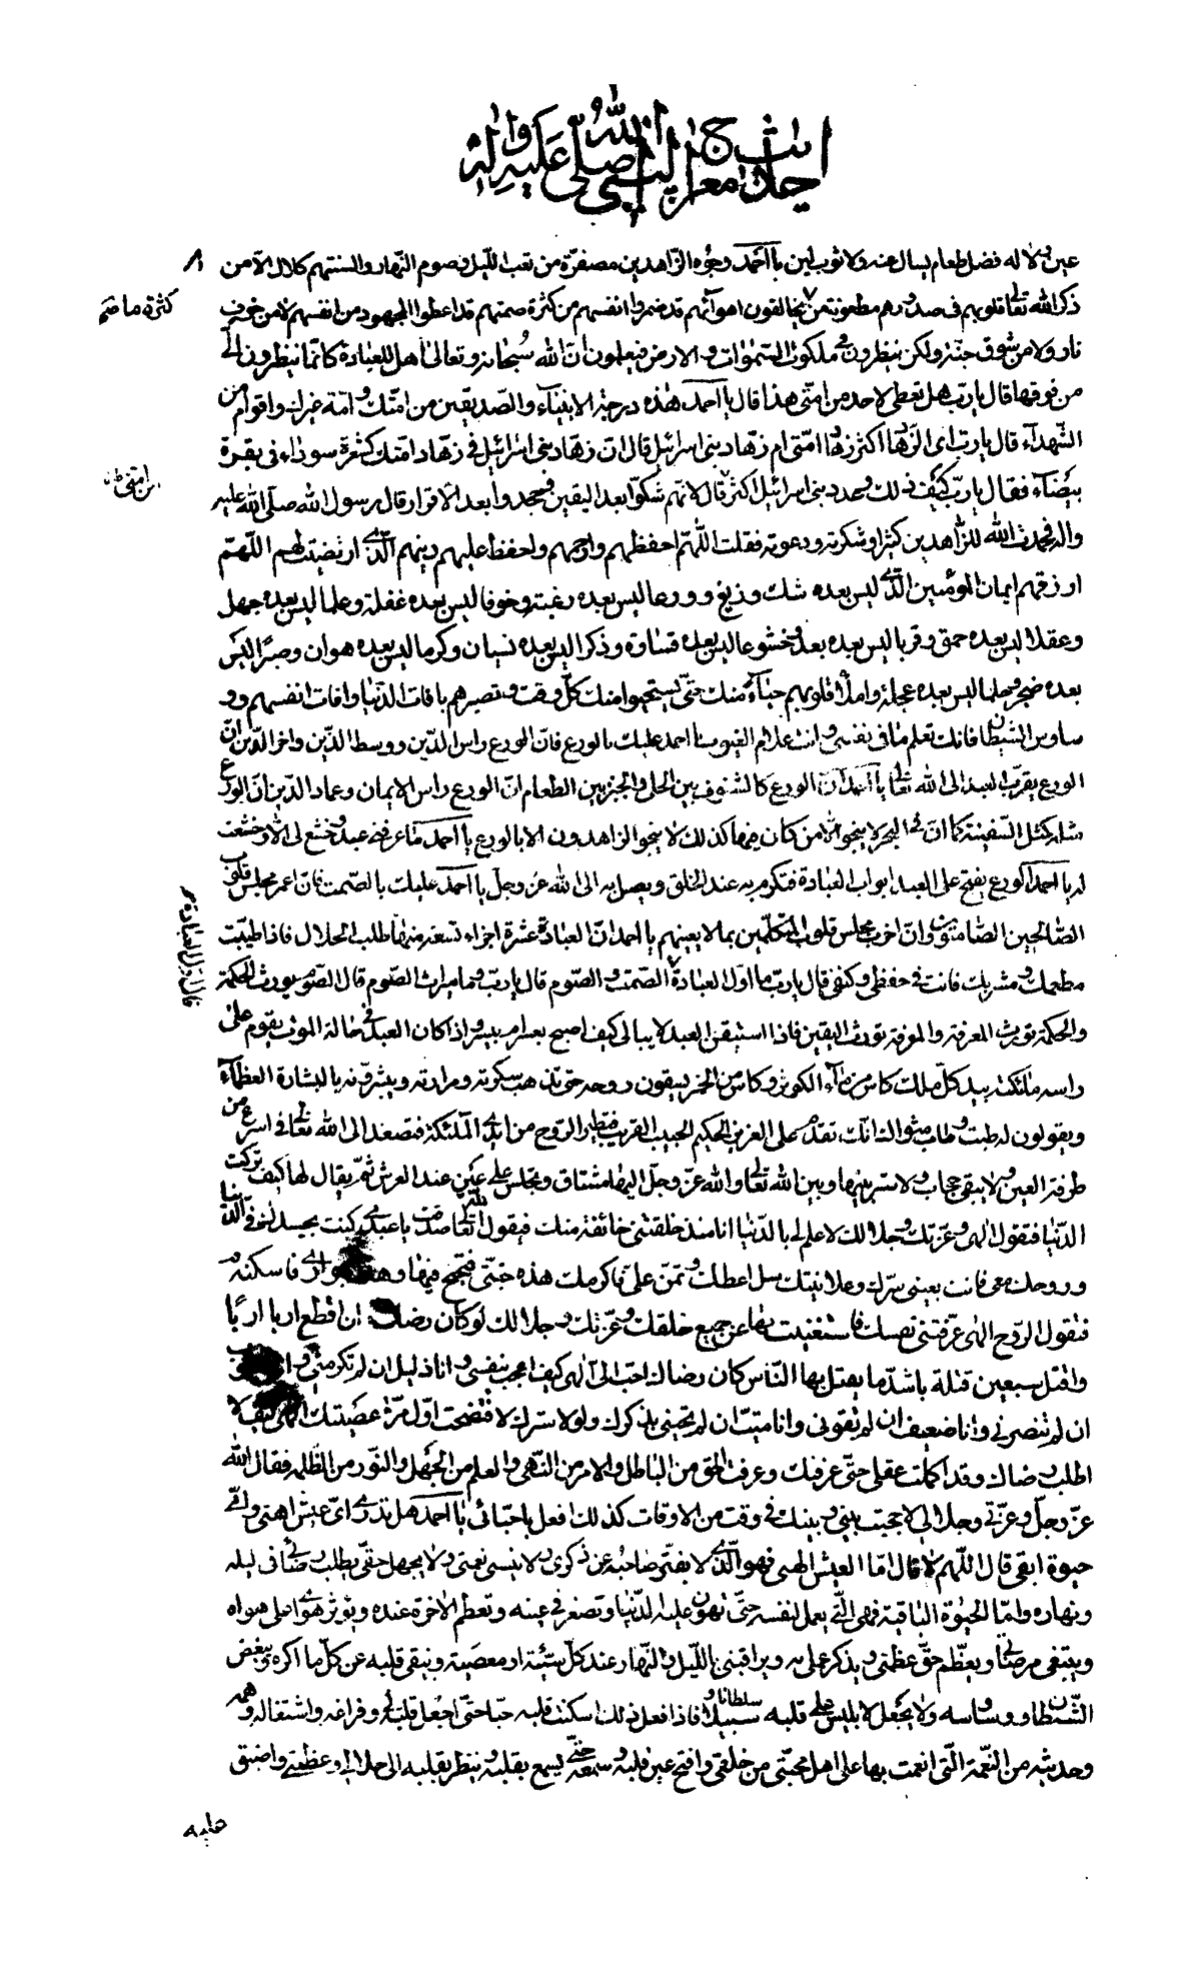 احاديث معراج النبي صلى الله عليه واله
٨
عين ولا له فضل طعام يسال عنه ولا ثوب لين يا احمد وجوه الزاهدين مصفرة من تعب الليل وصوم النهار والسنتهم كلال الا من
ذكر الله تعالى قلوبهم في صدورهم مطعونة من يخالفون اهوآئهم قد ضمروا انفسهم من كثرة صمتهم قد اعطوا المجهود من انفسهم لا من خوف
كثرة ما
نار ولا من شوق جنة ولكن ينظرون في ملكوت السموات والارض فيعلمون ان الله سبحانه وتعالى اهل للعبادة كانما ينظرون الى
من فوقها قال يا رب هل تعطي لاحد من امتي هذا قال يا احمد هذه درجة الانبياء والصديقين من امتك وامة غيرك واقوام من
الشهدآء قال يا رب اي الزهاد اكثر زهاد امتي ام زهاد بني اسرائيل قال ان زهاد بني اسرائيل في زهاد امتك كشعرة سوداء في بقرة
بيضآء فقال يا رب كيف ذلك وعدد بني اسرائيل اكثر قال لانهم شكوا بعد اليقين وجحدوا بعد الاقرار قال رسول الله صلى الله عليه
من امتي
واله فحمدت الله للزاهدين كثيرا وشكرته ودعوته فقلت اللهم احفظهم وارحمهم واحفظ عليهم دينهم الذي ارتضيت لهم اللهم
ارزقهم ايمان المؤمنين الذي ليس بعده شك وزيغ وورعا ليس بعده رغبة وخوفا ليس بعده غفلة وعلما ليس بعده جهل
وعقلا ليس بعده حمق وقربا ليس بعده بعد وخشوعا ليس بعده قساوة وذكرا ليس بعده نسيان وكرما ليس بعده هوان وصبرا ليس
بعده ضجر وحلما ليس بعده عجلة واملأ قلوبهم حياء منك حتى يستحيوا منك كل وقت وتبصرهم بافات الدنيا وافات انفسهم وو
ساوس الشيطان فانك تعلم ما في نفسي وانت علام الغيوب يا احمد عليك بالورع فان الورع راس الدين ووسط الدين واخر الدين ان
الورع يقرب العبد الى الله تعالى يا احمد ان الورع كالشنوف بين الحلي والخبز بين الطعام ان الورع راس الايمان وعماد الدين ان الورع
مثله كمثل السفينة كما ان في البحر لا ينجو الا من كان فيها كذلك لا ينجو الزاهدون الا بالورع يا احمد ما عرفني عبد وخشع لي الا وخشعت
له يا احمد الورع يفتح على العبد ابواب العبادة فتكرم به عند الخلق ويصل به الى الله عز وجل يا احمد عليك بالصمت فان اعمر مجلس قلوب
الصالحين الصامتين وان اخرب مجلس قلوب المتكلمين بما لا يعنيهم يا احمد ان العبادة عشرة اجزاء تسعة منها طلب الحلال فاذا طيبت
مطعمك ومشربك فانت في حفظي وكنفي قال يا رب ما اول العبادة الصمت والصوم قال يا رب وما ميراث الصوم قال الصوم يورث الحكمة
قال اول العبادة
والحكمة تورث المعرفة والمعرفة تورث اليقين فاذا استيقن العبد لا يبالي كيف اصبح بعسر ام بيسر واذا كان العبد في حالة الموت يقوم على
راسه ملئكة بيد كل ملك كاس من مآء الكوثر وكاس من الخمر يسقون روحه حتى تذهب سكرته ومرارته ويبشرونه بالبشارة العظمآء
ويقولون له طبت وطاب مثواك انك تقدم على العزيز الحكيم الحبيب القريب فتطير الروح من ايدي الملئكة فتصعد الى الله تعالى في اسرع من
طرفة العين ولا يبقى حجاب ولا ستر بينها وبين الله تعالى والله عز وجل اليها مشتاق وتجلس على عين عند العرش ثم يقال لها كيف تركت
الدنيا فتقول الهي وعزتك وجلالك لا علم لي بالدنيا انا منذ خلقتني خائفة منك فيقول الله تعالى صدقت يا عبدي كنت بجسدك في الدنيا
وروحك معي فانت بعيني سرك وعلانيتك سل اعطك وتمن علي فاكرمك هذه جنتي فتبحبح فيها وهذا جواري فاسكنه
فتقول الروح الهي عرفتني نفسك فاستغنيت بها عن جميع خلقك وعزتك وجلالك لو كان رضاك ان اقطع اربا اربا
واقتل سبعين قتلة باشد ما يقتل بها الناس كان رضاك احب الى الهي كيف اعجب بنفسي وانا ذليل ان لم تكرمني
ان لم تنصرني وانا ضعيف ان لم تقوني وانا ميت ان لم تحيني بذكرك ولولا سترك لافتضحت اول مرة عصيتك الهي كيف لا
اطلب رضاك وقد اكملت عقلي حتى عرفتك وعرفت الحق من الباطل والامر من النهي والعلم من الجهل والنور من الظلمة فقال الله
عز وجل وعزتي وجلالي لا حجبت بيني وبينك في وقت من الاوقات كذلك افعل باحبائي يا احمد هل تدري اي عيش اهنى واي
حيوة ابقى قال اللهم لا قال اما العيش الهني فهو الذي لا يفتر صاحبه عن ذكري ولا ينسى نعمتي ولا يجهل حقي يطلب رضائي في ليله
ونهاره واما الحيوة الباقية فهي التي يعمل لنفسه حتى تهون عليه الدنيا وتصغر في عينه وتعظم الاخرة عنده ويؤثر هواي على هواه
ويبتغي مرضاتي ويعظم حق عظمتي ويذكر علمي به ويراقبني بالليل والنهار عند كل سيئة او معصية وينقي قلبه عن كل ما اكره ويبغض
الشيطان ووساوسه ولا يجعل لابليس على قلبه سلطانا وسبيلا فاذا فعل ذلك اسكنت قلبه حبا حتى اجعل قلبه لي وفراغه واشتغاله وهمه
وحديثه من النعمة التي انعمت بها على اهل محبتي من خلقي وافتح عين قلبه وسمعه حتى يسمع بقلبه وينظر بقلبه الى جلالي وعظمتي واضيق
عليه